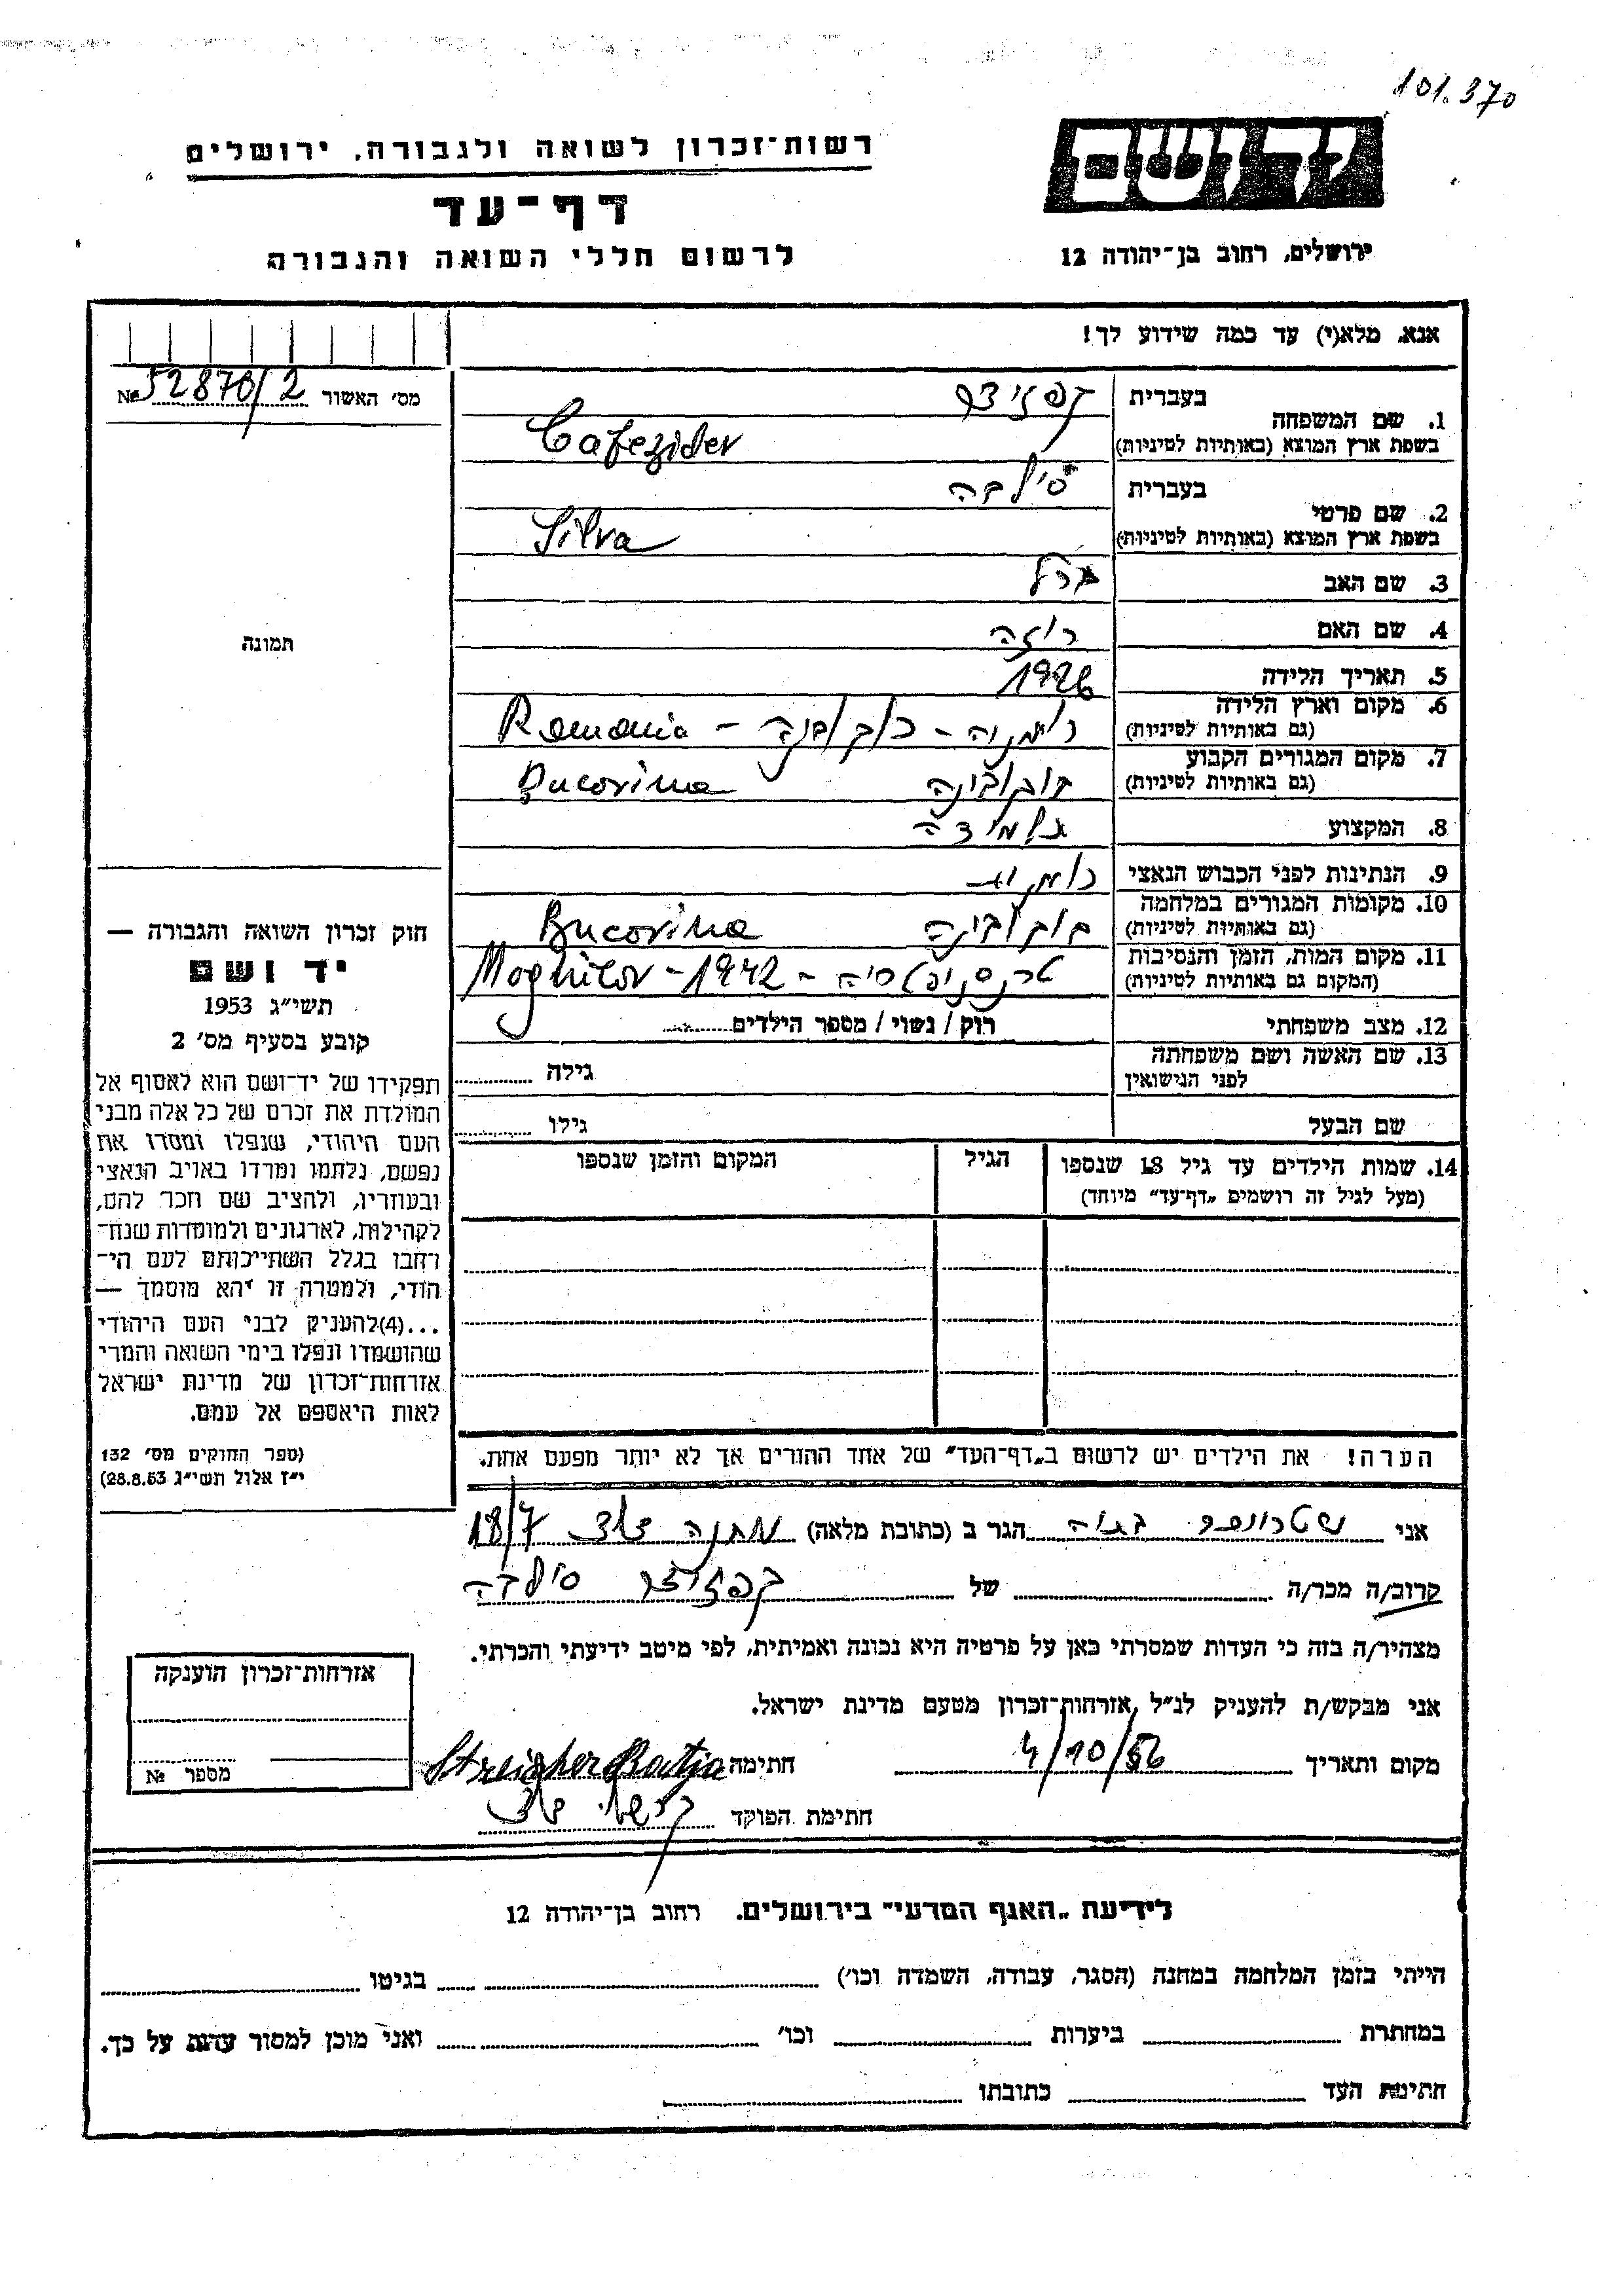 101.370
יד ושם
רשות-זכרון לשואה ולגבורה, ירושלים
דף-עד
לרשום חללי השואה והגבורה
ירושלים, רחוב בן-יהודה 12
אנא, מלא(י) עד כמה שידוע לך!
מס' האשור № 52870/2
1. שם המשפחה
בעברית קפזידר
בשפת ארץ המוצא (באותיות לטיניות) Cafezider
2. שם פרטי
בעברית סילבה
בשפת ארץ המוצא (באותיות לטיניות) Silva
3. שם האב ברל
4. שם האם רוזה
5. תאריך הלידה 1926
6. מקום וארץ הלידה
(גם באותיות לטיניות) רומניה - בוקובינה - Romania
7. מקום המגורים הקבוע
(גם באותיות לטיניות) בוקובינה Bucovina
8. המקצוע תלמידה
9. הנתינות לפני הכבוש הנאצי רומנית
10. מקומות המגורים במלחמה
(גם באותיות לטיניות) בוקובינה Bucovina
11. מקום המות, הזמן והנסיבות
(המקום גם באותיות לטיניות) טרנסניסטריה - 1942 - Moghilov
12. מצב משפחתי רוק / נשוי / מספר הילדים
13. שם האשה ושם משפחתה
לפני הנישואין גילה
שם הבעל גילו
14. שמות הילדים עד גיל 18 שנספו
(מעל לגיל זה רושמים „דף-עד" מיוחד)
הגיל
המקום והזמן שנספו
הערה! את הילדים יש לרשום ב„דף-העד" של אחד ההורים אך לא יותר מפעם אחת.
תמונה
חוק זכרון השואה והגבורה —
יד ושם
תשי"ג 1953
קובע בסעיף מס' 2
תפקידו של יד-ושם הוא לאסוף אל
המולדת את זכרם של כל אלה מבני
העם היהודי, שנפלו ומסרו את
נפשם, נלחמו ומרדו באויב הנאצי
ובעוזריו, ולהציב שם וזכר להם,
לקהילות, לארגונים ולמוסדות שנח-
רבו בגלל השתייכותם לעם הי-
הודי, ולמטרה זו יהא מוסמך —
...(4)להעניק לבני העם היהודי
שהושמדו ונפלו בימי השואה והמרי
אזרחות-זכרון של מדינת ישראל
לאות היאספם אל עמם.
(ספר החוקים מס' 132
י"ז אלול תשי"ג 28.8.53)
אני בתיה הגר ב (כתובת מלאה) מחנה 18/7
קרוב/ה מכר/ה של קפזידר סילבה
מצהיר/ה בזה כי העדות שמסרתי כאן על פרטיה היא נכונה ואמיתית, לפי מיטב ידיעתי והכרתי.
אני מבקש/ת להעניק לנ"ל אזרחות-זכרון מטעם מדינת ישראל.
מקום ותאריך 4/10/56 חתימה Streigher Batia
חתימת הפוקד
אזרחות-זכרון הוענקה
מספר №
לידיעת „האגף המדעי" בירושלים. רחוב בן-יהודה 12
הייתי בזמן המלחמה במחנה (הסגר, עבודה, השמדה וכו') בגיטו
במחתרת ביערות וכו' ואני מוכן למסור עדות על כך.
חתימת העד כתובתו